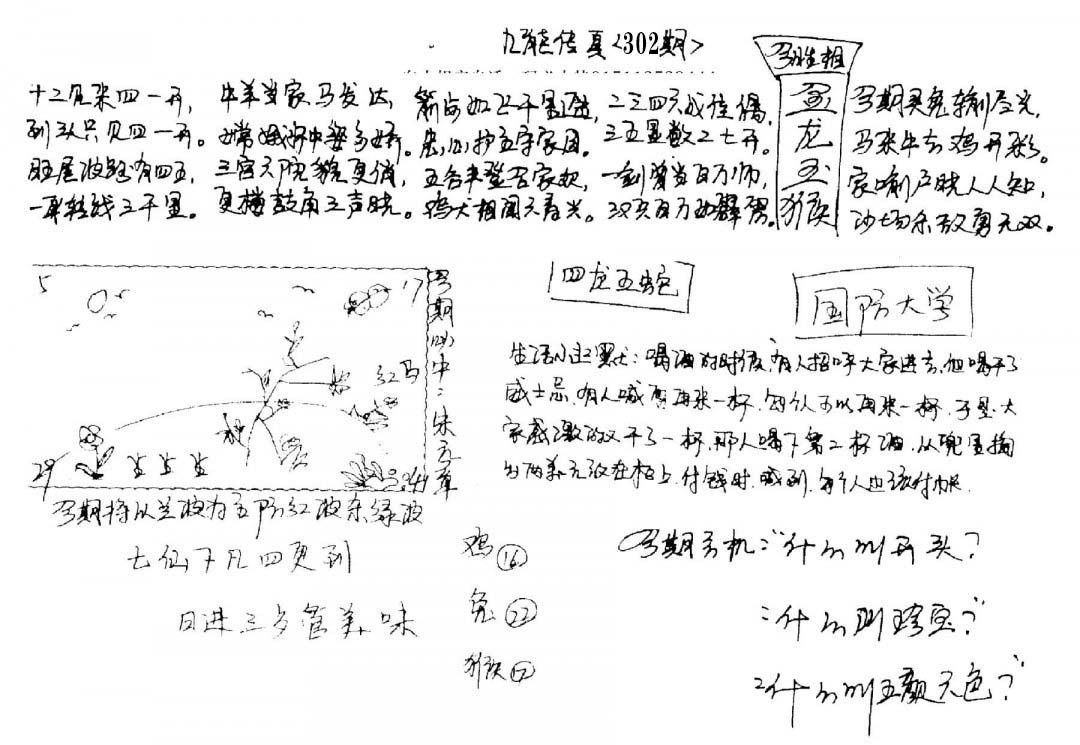 九龍传真<302期>
今期生相
金
龙
玉
猴
十二见来四一开，
到 只见四一开。
旺尾波路有四五，
一 转线三千里。
牛羊当家马发达，
嫦娥 中婆多娇。
三宫六院貌更俏，
更楼鼓角三声晓。
箭 如飞千里 ，
忠心护五守家园。
五谷丰登百家欢，
鸡犬相闻天春光。
二三四六成佳偶，
三五显数二七开。
一剑 当百万师，
双夹百万 。
今期买兔输到尽光，
马来牛去鸡开彩。
家喻户晓人人知，
沙场杀敌勇无双。
5
17
红马
29
44
今期 中：朱元章
今期特以兰波为主防红波杀绿波
七仙下凡四更到
日进三岁管美味
鸡⑯
兔㉒
猴⑰
四龙五蛇
国防大学
生活小幽默：喝酒的时候，有人招呼大家进去，但喝干了
威士忌，有人喊 再来一杯，每个人可以再来一杯，于是大
家感激的又干了一杯，那人喝下第二杯酒，从兜里掏
出两美元放在柜上，付钱时，喊到，每个人也该付帐。
今期玄机：“什么叫开头？
：什么叫珍宝？”
：什么叫五颜六色？”